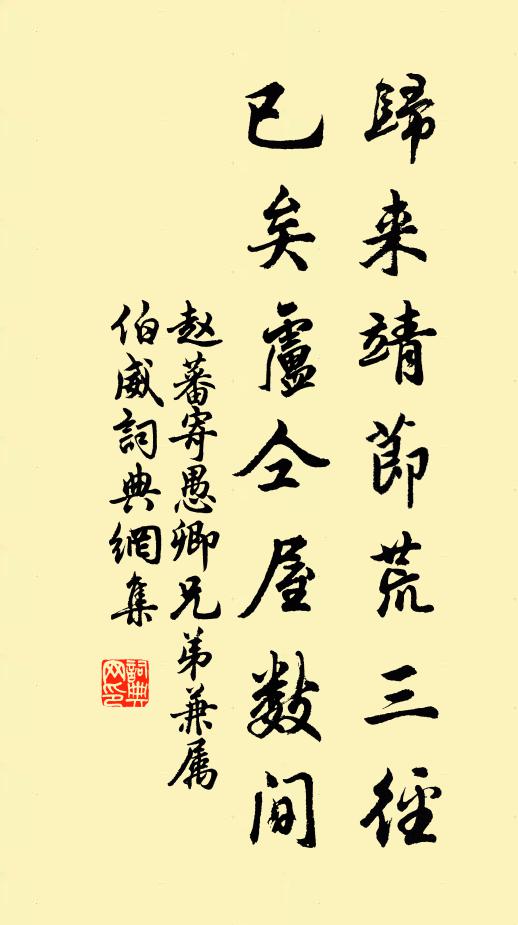 歸来靖節荒三徑
已矣盧仝屋數间
赵蕃寄愚卿兄弟兼属
伯威詞典網集
詞典网印